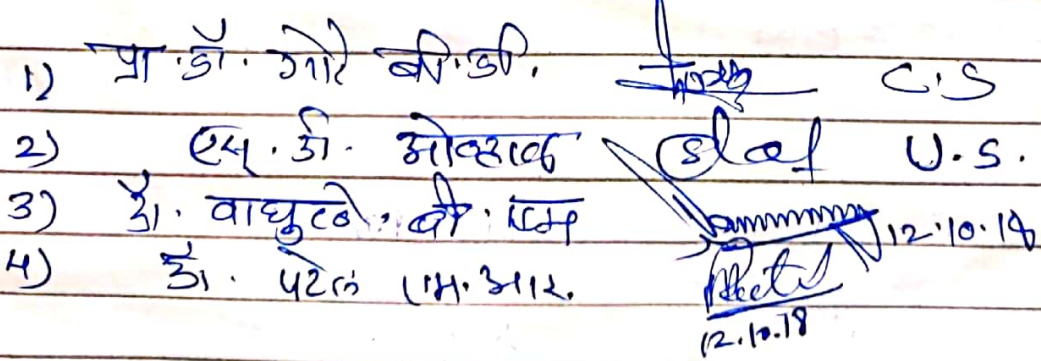 1) प्रा.डॉ. गोरे बी.डी. C.S
2) एस. डी. ओव्हाळ U.S.
3) डॉ. वाघुले. बी. एम 12.10.18
4) डॉ. पटेल एम.आर.
12.10.18